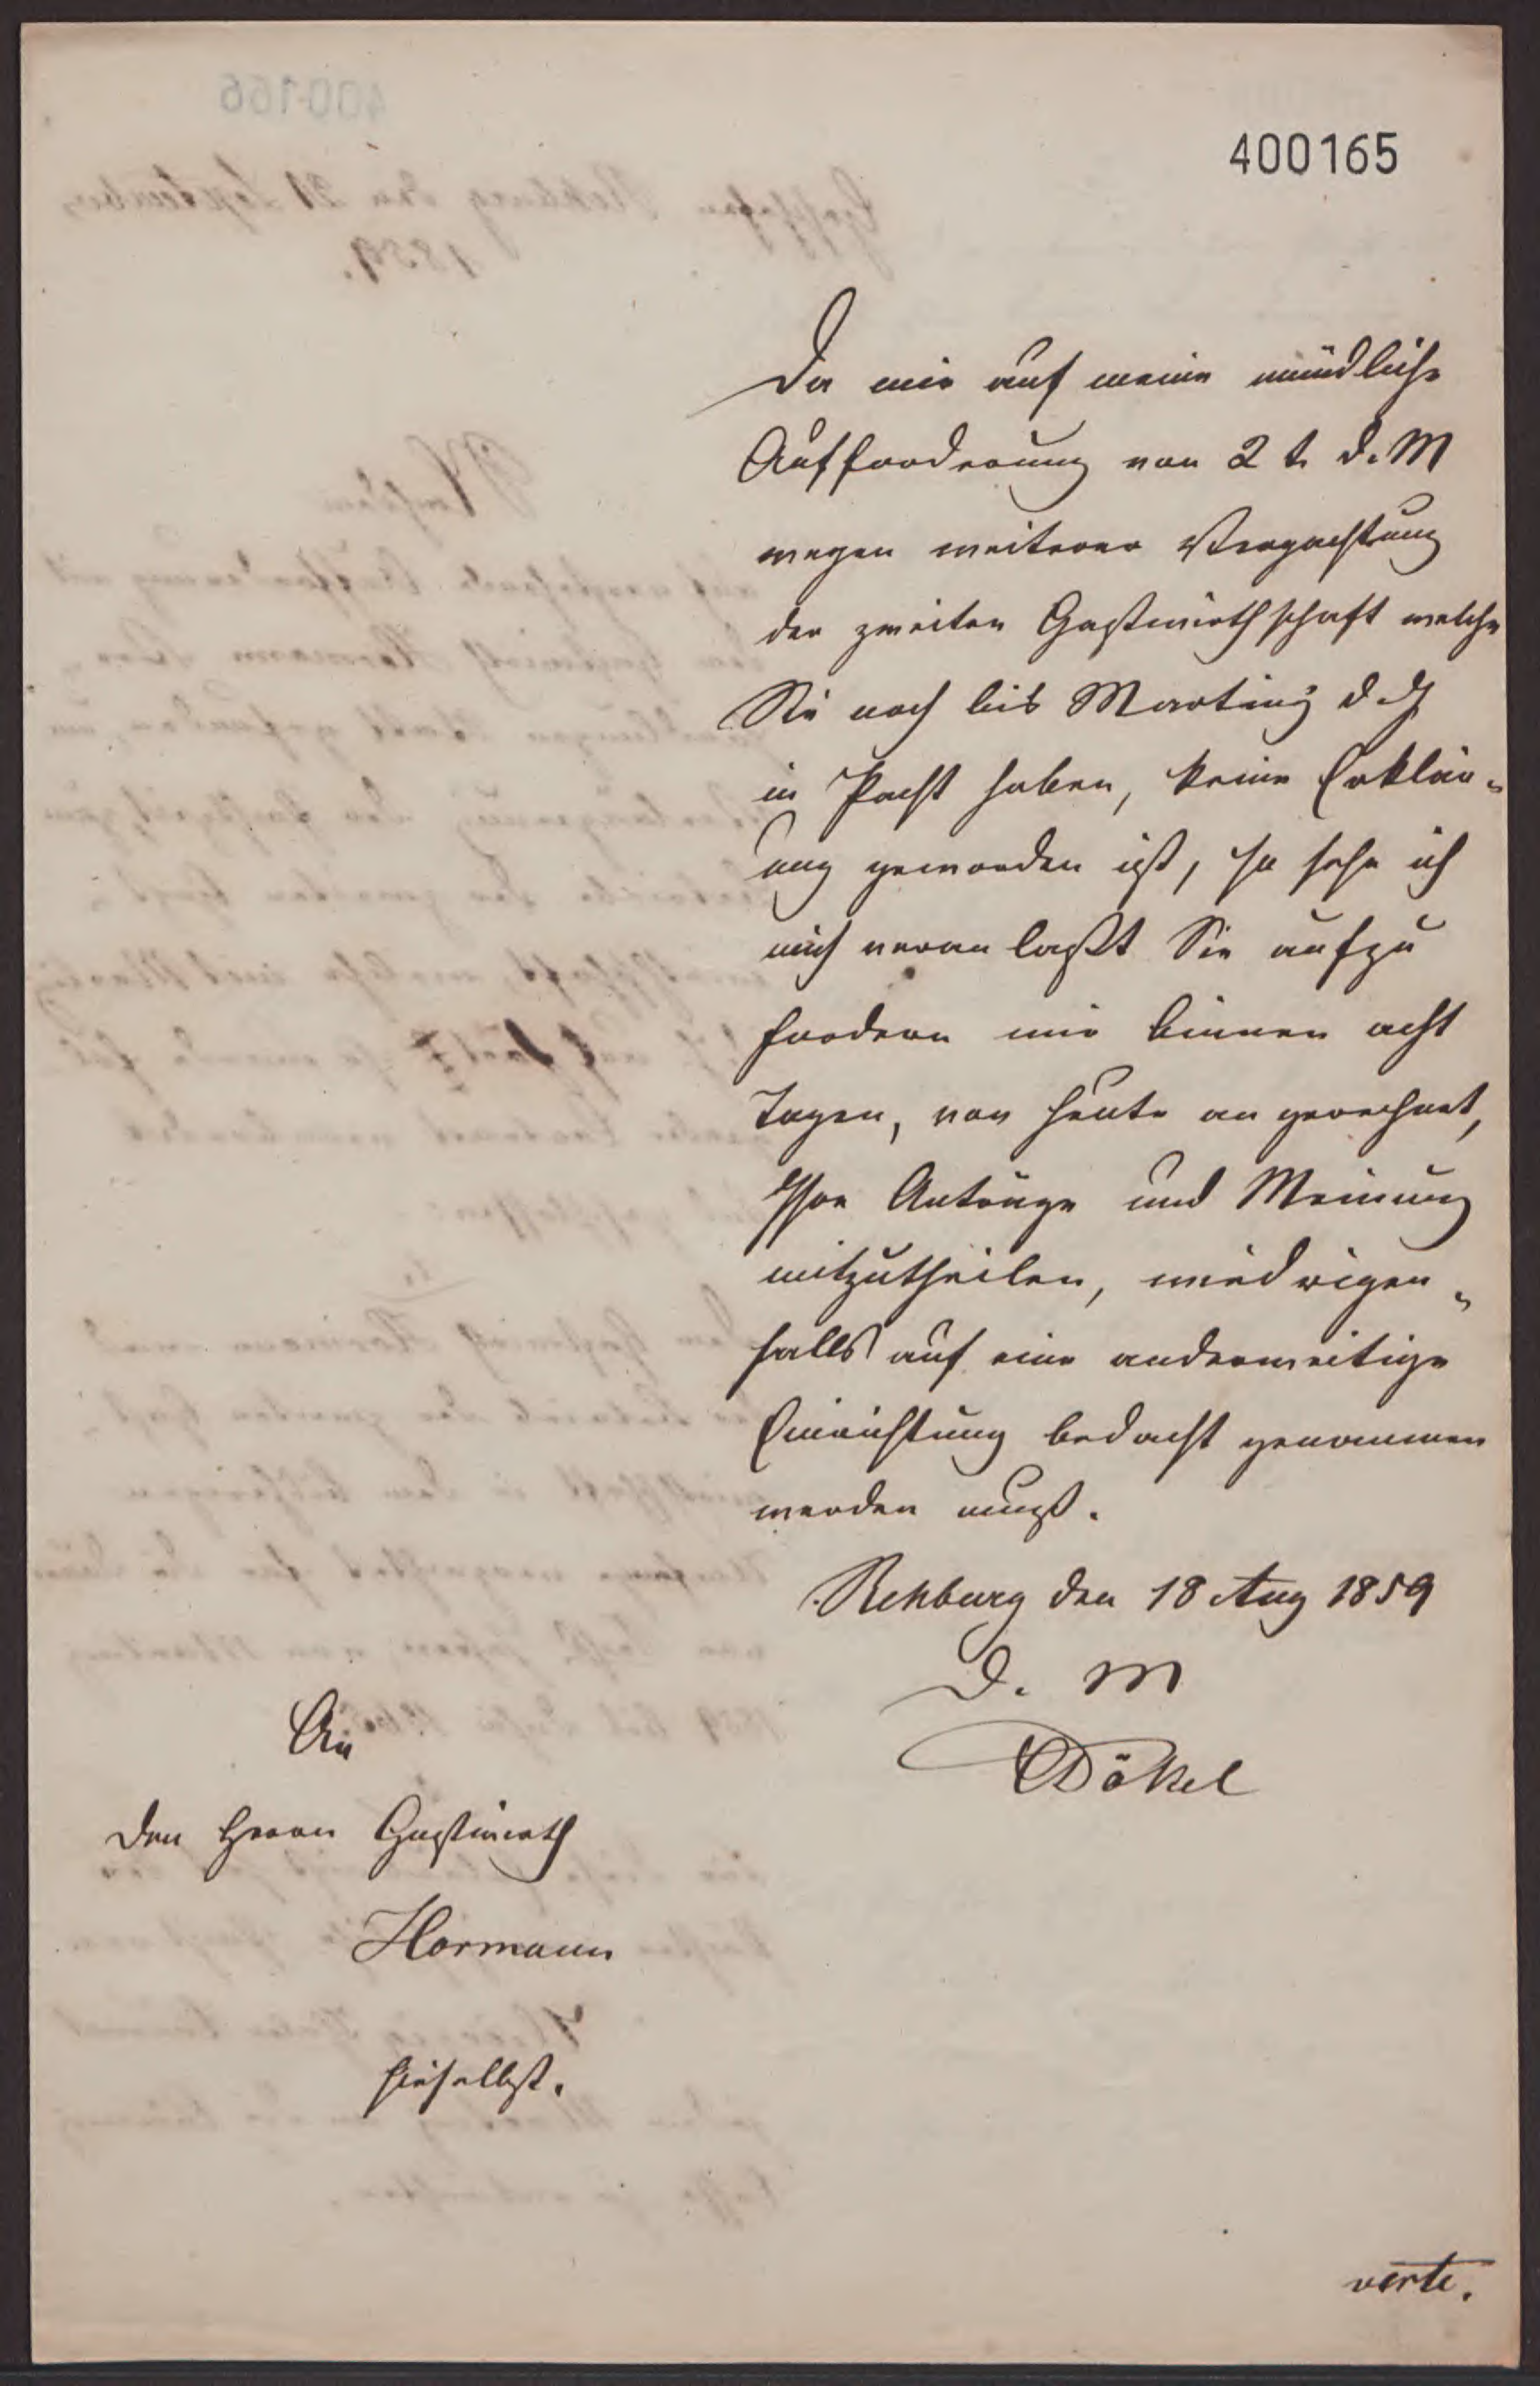 400165
Da mir auf meine mündliche
Aufforderung von 2 t. d. M
wegen weiterer Verpachtung
der zweiten Gastwirthschaft welche
Sie noch bis Martini d. J
in Pacht haben, keine Erklär-
ung geworden ist, so sehe ich
mich veranlaßt Sie aufzu
fordern mir binnen acht
Tagen, von heute an gerechnet,
Ihre Anträge und Meinung
mitzutheilen, wiedrigen-
falls auf eine anderweitige
Einrichtung bedacht genommen
werden muß.
Rehburg den 18 Aug 1859
D. M
Dökel
An
den Herrn Gastwirth
Hormann
hieselbst.
verte.